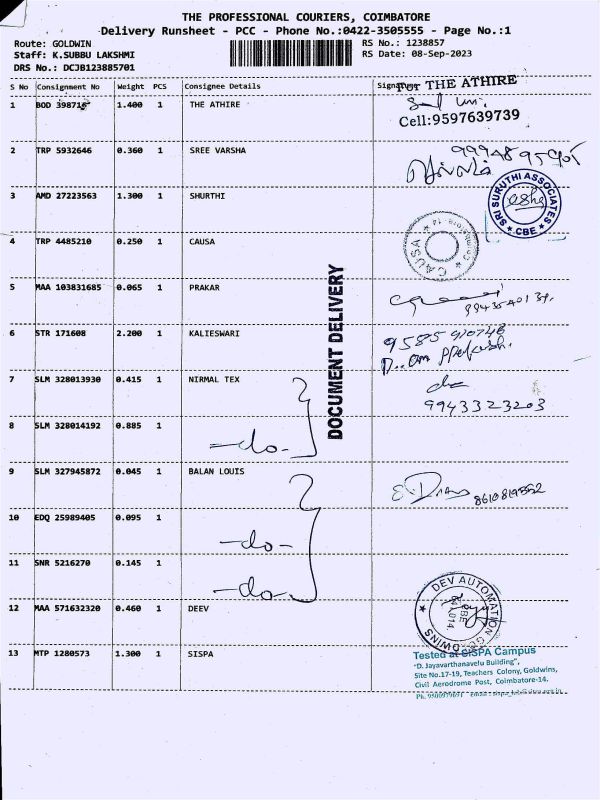 THE PROFESSIONAL COURIERS, COIMBATORE
Delivery Runsheet - PCC - Phone No.:0422-3505555 - Page No.:1
Route: GOLDWIN
Staff: K.SUBBU LAKSHMI
DRS No.: DCJB123885701
RS No.: 1238857
RS Date: 08-Sep-2023
S No Consignment No Weight PCS Consignee Details
For THE ATHIRE
1 BOD 1.400 1 THE ATHIRE
Cell:9597639739
2 TRP 5932646 0.360 1 SREE VARSHA
3 AMD 27223563 1.300 1 SHURTHI
SRI SURUTHI ASSOCIATES
★ CBE ★
4 TRP 4485210 0.250 1 CAUSA
★ CAUSA ★
5 MAA 103831685 0.065 1 PRAKAR
DOCUMENT DELIVERY
6 STR 171608 2.200 1 KALIESWARI
7 SLM 328013930 0.415 1 NIRMAL TEX
9943323203
8 SLM 328014192 0.885 1 -do-
9 SLM 327945872 0.045 1 BALAN LOUIS
10 EDQ 25989405 0.095 1 -do-
11 SNR 5216270 0.145 1 -do-
12 MAA 571632320 0.460 1 DEEV
DEV AUTOMATION
13 MTP 1280573 1.300 1 SISPA
Tested at SISPA Campus
"D. Jayavarthanavelu Building",
Site No.17-19, Teachers Colony, Goldwins,
Civil Aerodrome Post, Coimbatore-14.